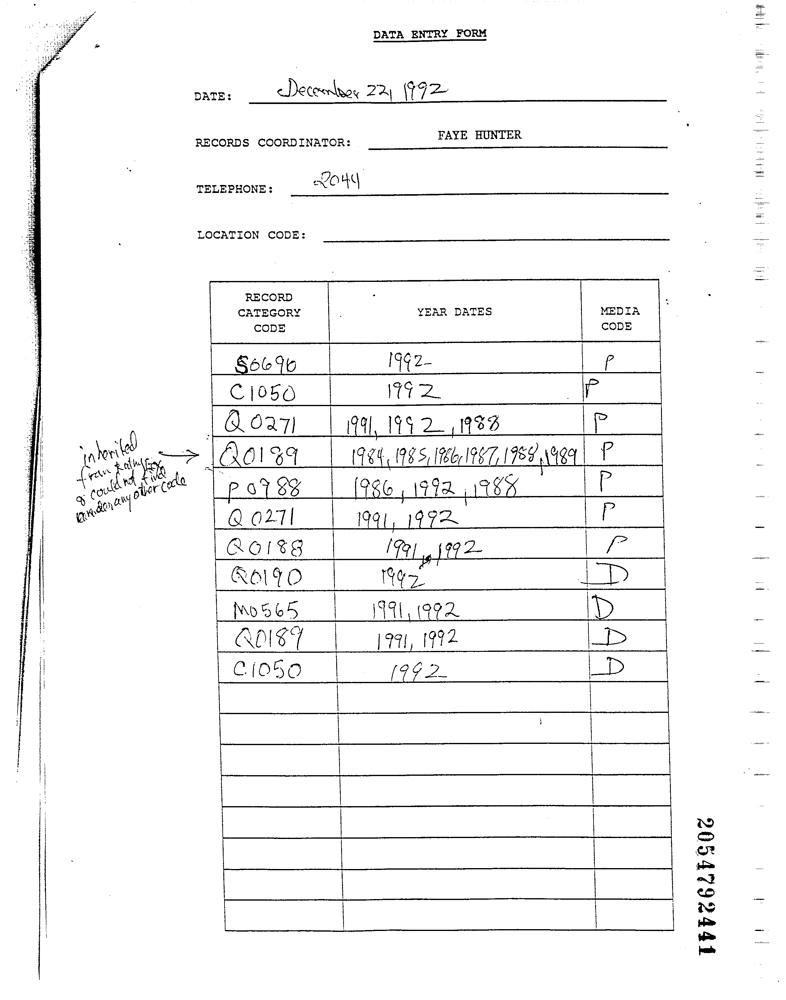 DATA ENTRY FORM
DATE: December 22, 1992
RECORDS COORDINATOR: FAYE HUNTER
TELEPHONE: 2044
LOCATION CODE:
RECORD CATEGORY CODE YEAR DATES MEDIA CODE
S0690 1992 P
C1050 1992 P
Q0271 1991, 1992, 1988 P
Q0189 1984, 1985, 1986, 1987, 1988, 1989 P
P0988 1986, 1992, 1988 P
Q0271 1991, 1992 P
Q0188 1991, 1992 P
Q0190 1992 D
M0565 1991, 1992 D
Q0189 1991, 1992 D
C1050 1992 D
inherited
from
& could not find
any other code
2054792441